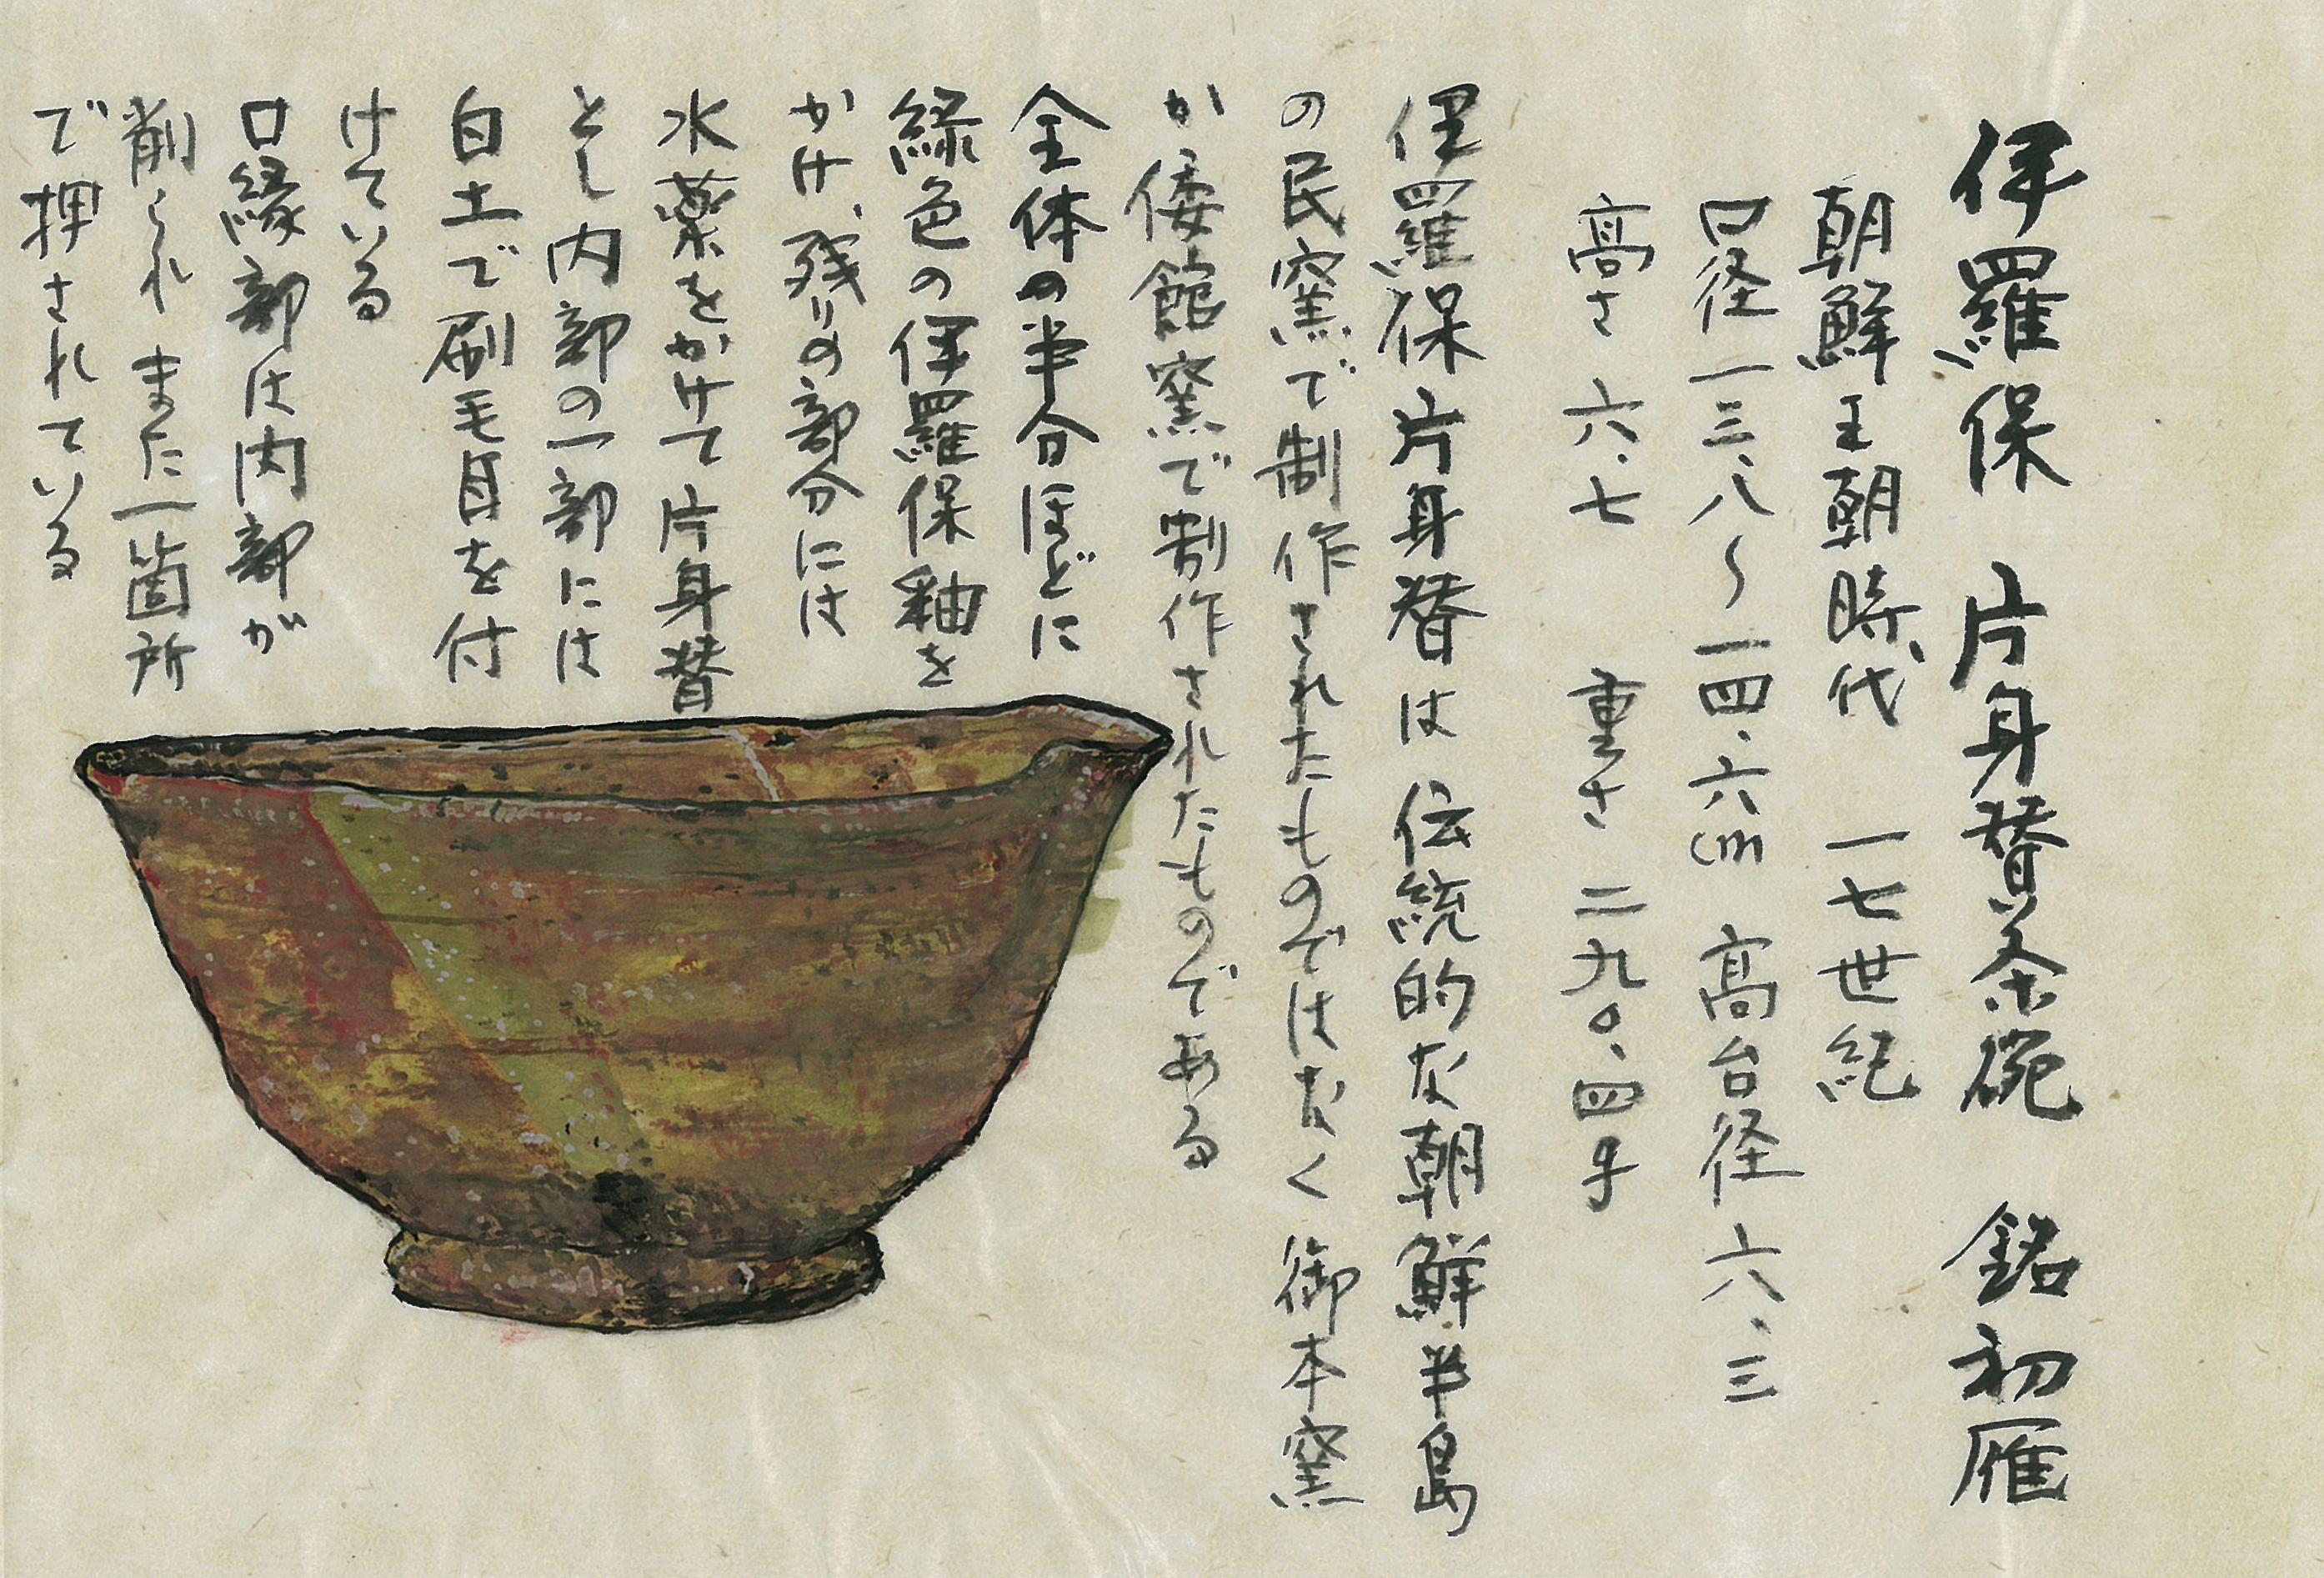 伊羅保 片身替茶碗 銘 初雁
朝鮮王朝時代 一七世紀
口径 一三.八〜一四.六cm 高台径 六.三
高さ 六.七 重さ 二九〇.四g
伊羅保片身替は伝統的な朝鮮半島
の民窯で制作されたものではなく御本窯
か倭館窯で制作されたものである
全体の半分ほどに
緑色の伊羅保釉を
かけ、残りの部分には
水薬をかけて片身替
とし内部の一部には
白土で刷毛目を付
けている
口縁部は内部が
削られ また一箇所
で押されている